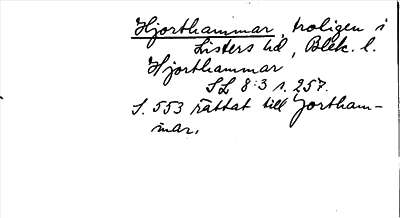 Hjorthammar, troligen i
Listers hd, Blek. l.
Hjorthammar
SL 8:3 s. 257.
S. 553 rättat till Jortham-
mar.